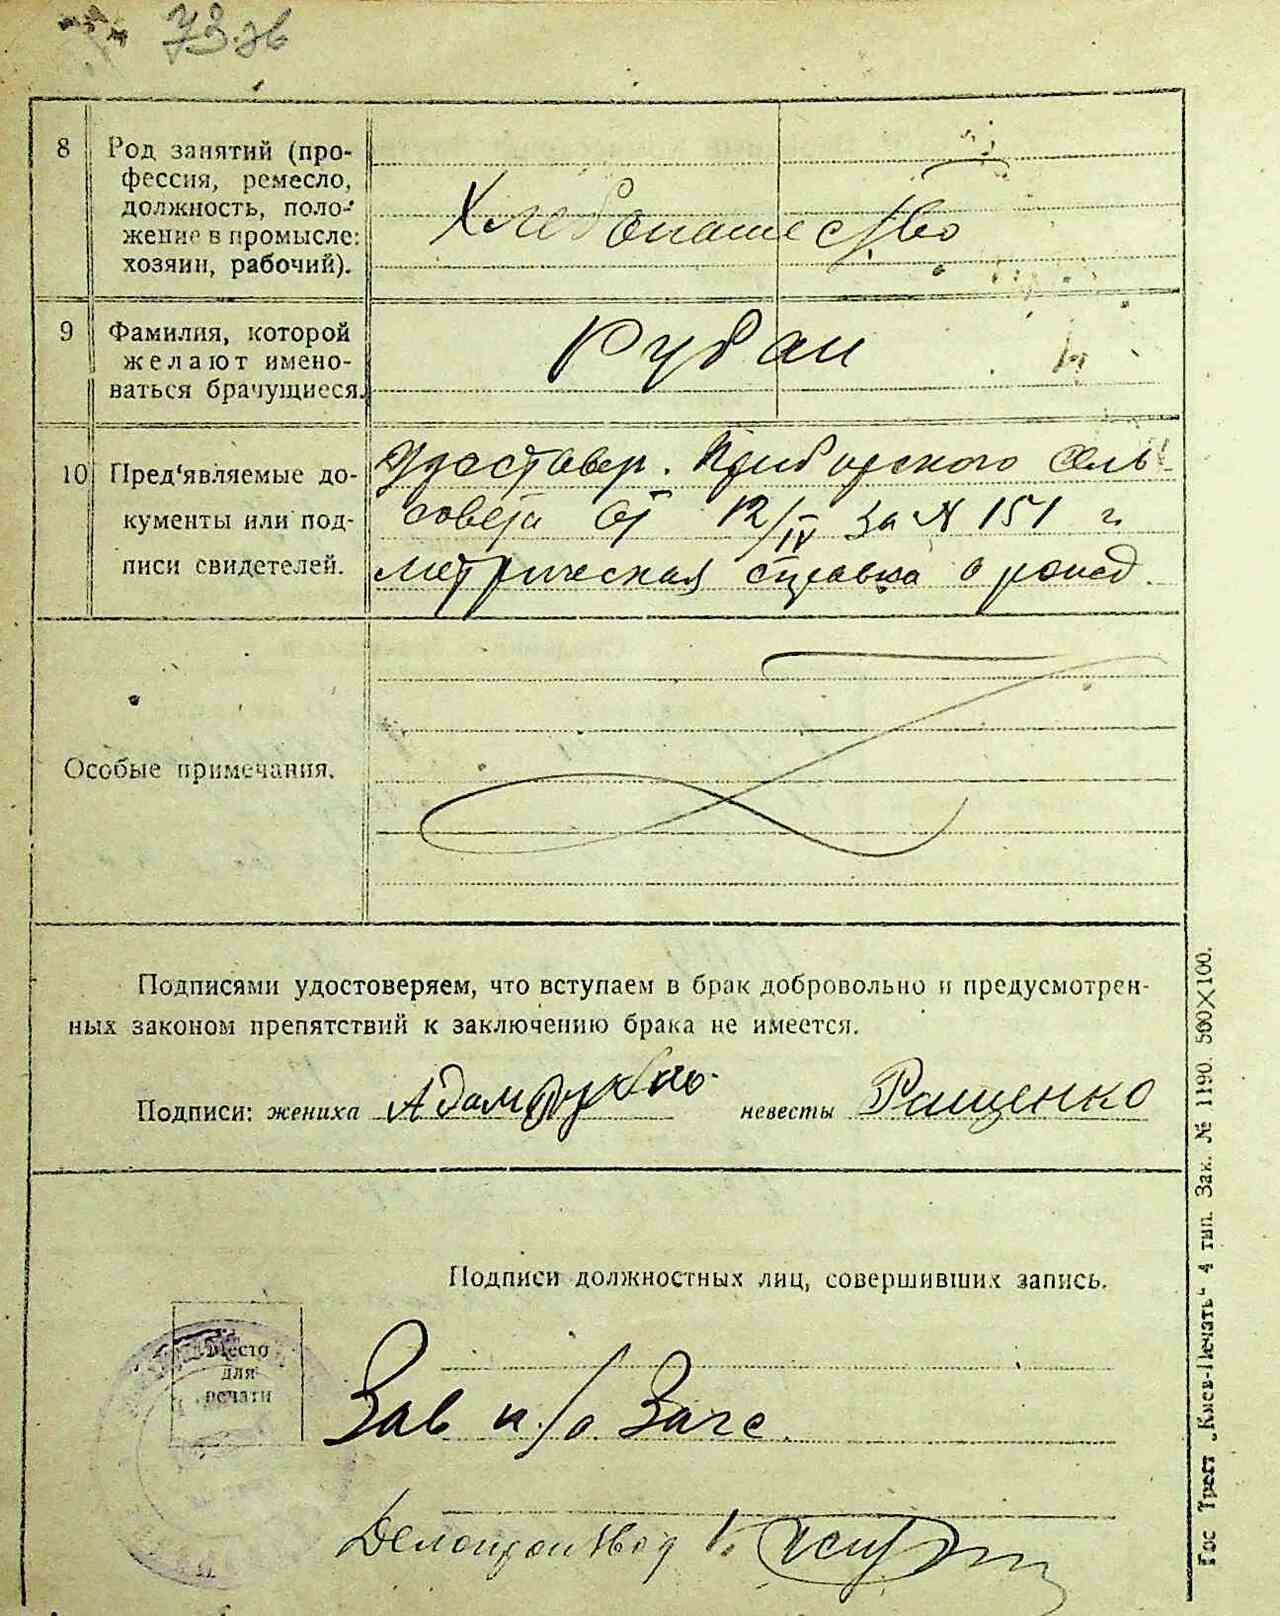 73 зв
8 Род занятий (про-
фессия, ремесло,
должность, поло-
жение в промысле:
хозяин, рабочий).
Хлебопашество
9 Фамилия, которой
желают имено-
ваться брачущиеся.
Рубан
10 Пред‘являемые до-
кументы или под-
писи свидетелей.
Удоставер. Прибирского сель-
совета от 12/IV за № 151 и
метрическая справка о рожд.
Особые примечания.
Подписями удостоверяем, что вступаем в брак добровольно и предусмотрен-
ных законом препятствий к заключению брака не имеется.
Подписи: жениха Адам Рубан невесты Ращенко
Подписи должностных лиц, совершивших запись.
Место
для
печати
Зав п/о Загс
Делопроизвод
Гос Трест „Киев-Печать“ 4 тип. Зак. № 1190. 500×100.